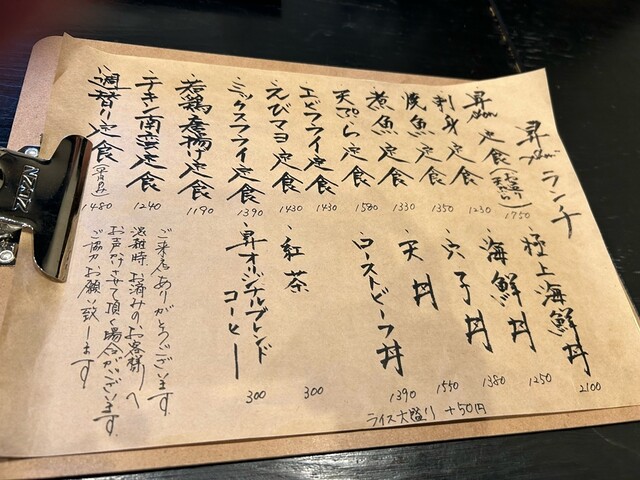 昇 ランチ
昇 定食
1750
刺身定食
1230
焼魚定食
1350
煮魚定食
1330
天ぷら定食
1580
エビフライ定食
1430
えびマヨ定食
1430
ミックスフライ定食
1390
若鶏唐揚げ定食
1190
チキン南蛮定食
1240
週替り定食(平日のみ)
1480
極上海鮮丼
2100
海鮮丼
1250
穴子丼
1380
天丼
1550
ローストビーフ丼
1390
ライス大盛り +50円
紅茶
300
昇オリジナルブレンド
コーヒー
300
ご来店ありがとうございます。
混雑時、お済みのお客様へ
お声かけさせて頂く場合がございます。
ご協力お願い致します。